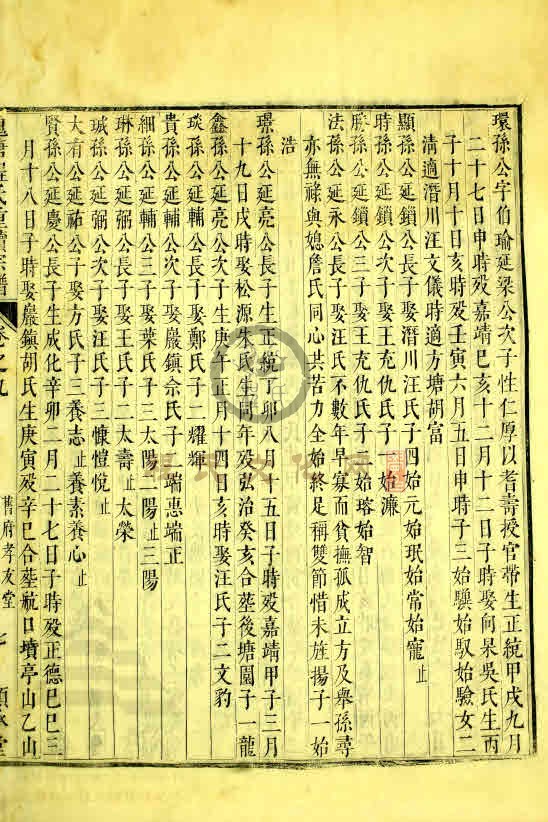 環孫公字伯瑜延梁公次子性仁厚以耆壽授官帶生正統甲戌九月
二十七日申時歿嘉靖己亥十二月十二日子時娶何杲吳氏生丙
子十月十日亥時歿壬寅六月五日申時子三始驥始馭始驗女二
清適潛川汪文儀時適方塘胡富
顯孫公延鎖公長子娶潛川汪氏子四始元始珉始常始寵止
時孫公延鎖公次子娶王充仇氏子一始濂
勝孫公延鎖公三子娶王充仇氏子二始瑢始智
法孫公延永公長子娶汪氏不數年早寡而貧撫孤成立方及舉孫尋
亦無祿與媳詹氏同心共苦力全始終足稱雙節惜未旌揚子一始
浩
璟孫公延亮公長子生正統丁卯八月十五日子時歿嘉靖甲子三月
十九日戌時娶松源朱氏生同年歿弘治癸亥合塟後塘園子一龍
鑫孫公延亮公次子生庚子正月十四日亥時娶汪氏子二文豹
琰孫公延輔公長子娶鄭氏子二耀輝
貴孫公延輔公次子娶巖鎮佘氏子二瑞惠瑞正
細孫公延輔公三子娶葉氏子三太陽二陽止三陽
琳孫公延弼公長子娶王氏子二太壽止太榮
珹孫公延弼公次子娶汪氏子三慷愷悅止
大有公延祐公子娶方氏子三養志止養素養心止
賢孫公延慶公長子生成化辛卯二月二十七日子時歿正德己巳三
月十八日子時娶巖鎮胡氏生庚寅歿辛巳合塟航口墳亭山乙山
程氏重續宗譜
卷之九
舊府孝友堂
七